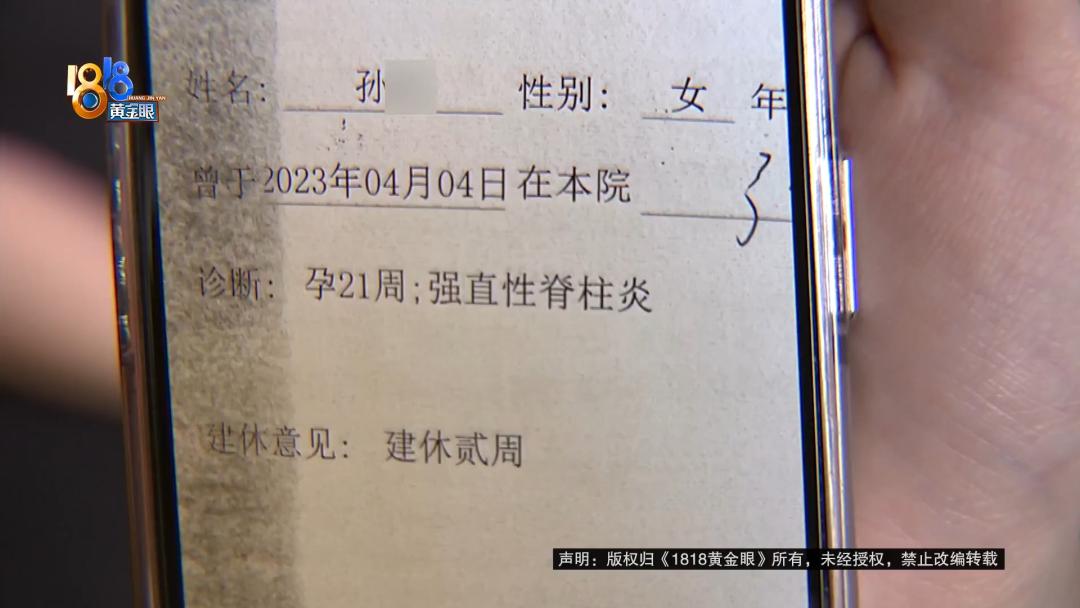 1818
HUANG JIN YAN
黄金眼
姓名: 孙 性别: 女 年
曾于2023年04月04日在本院
诊断: 孕21周;强直性脊柱炎
建休意见: 建休贰周
声明：版权归《1818黄金眼》所有，未经授权，禁止改编转载